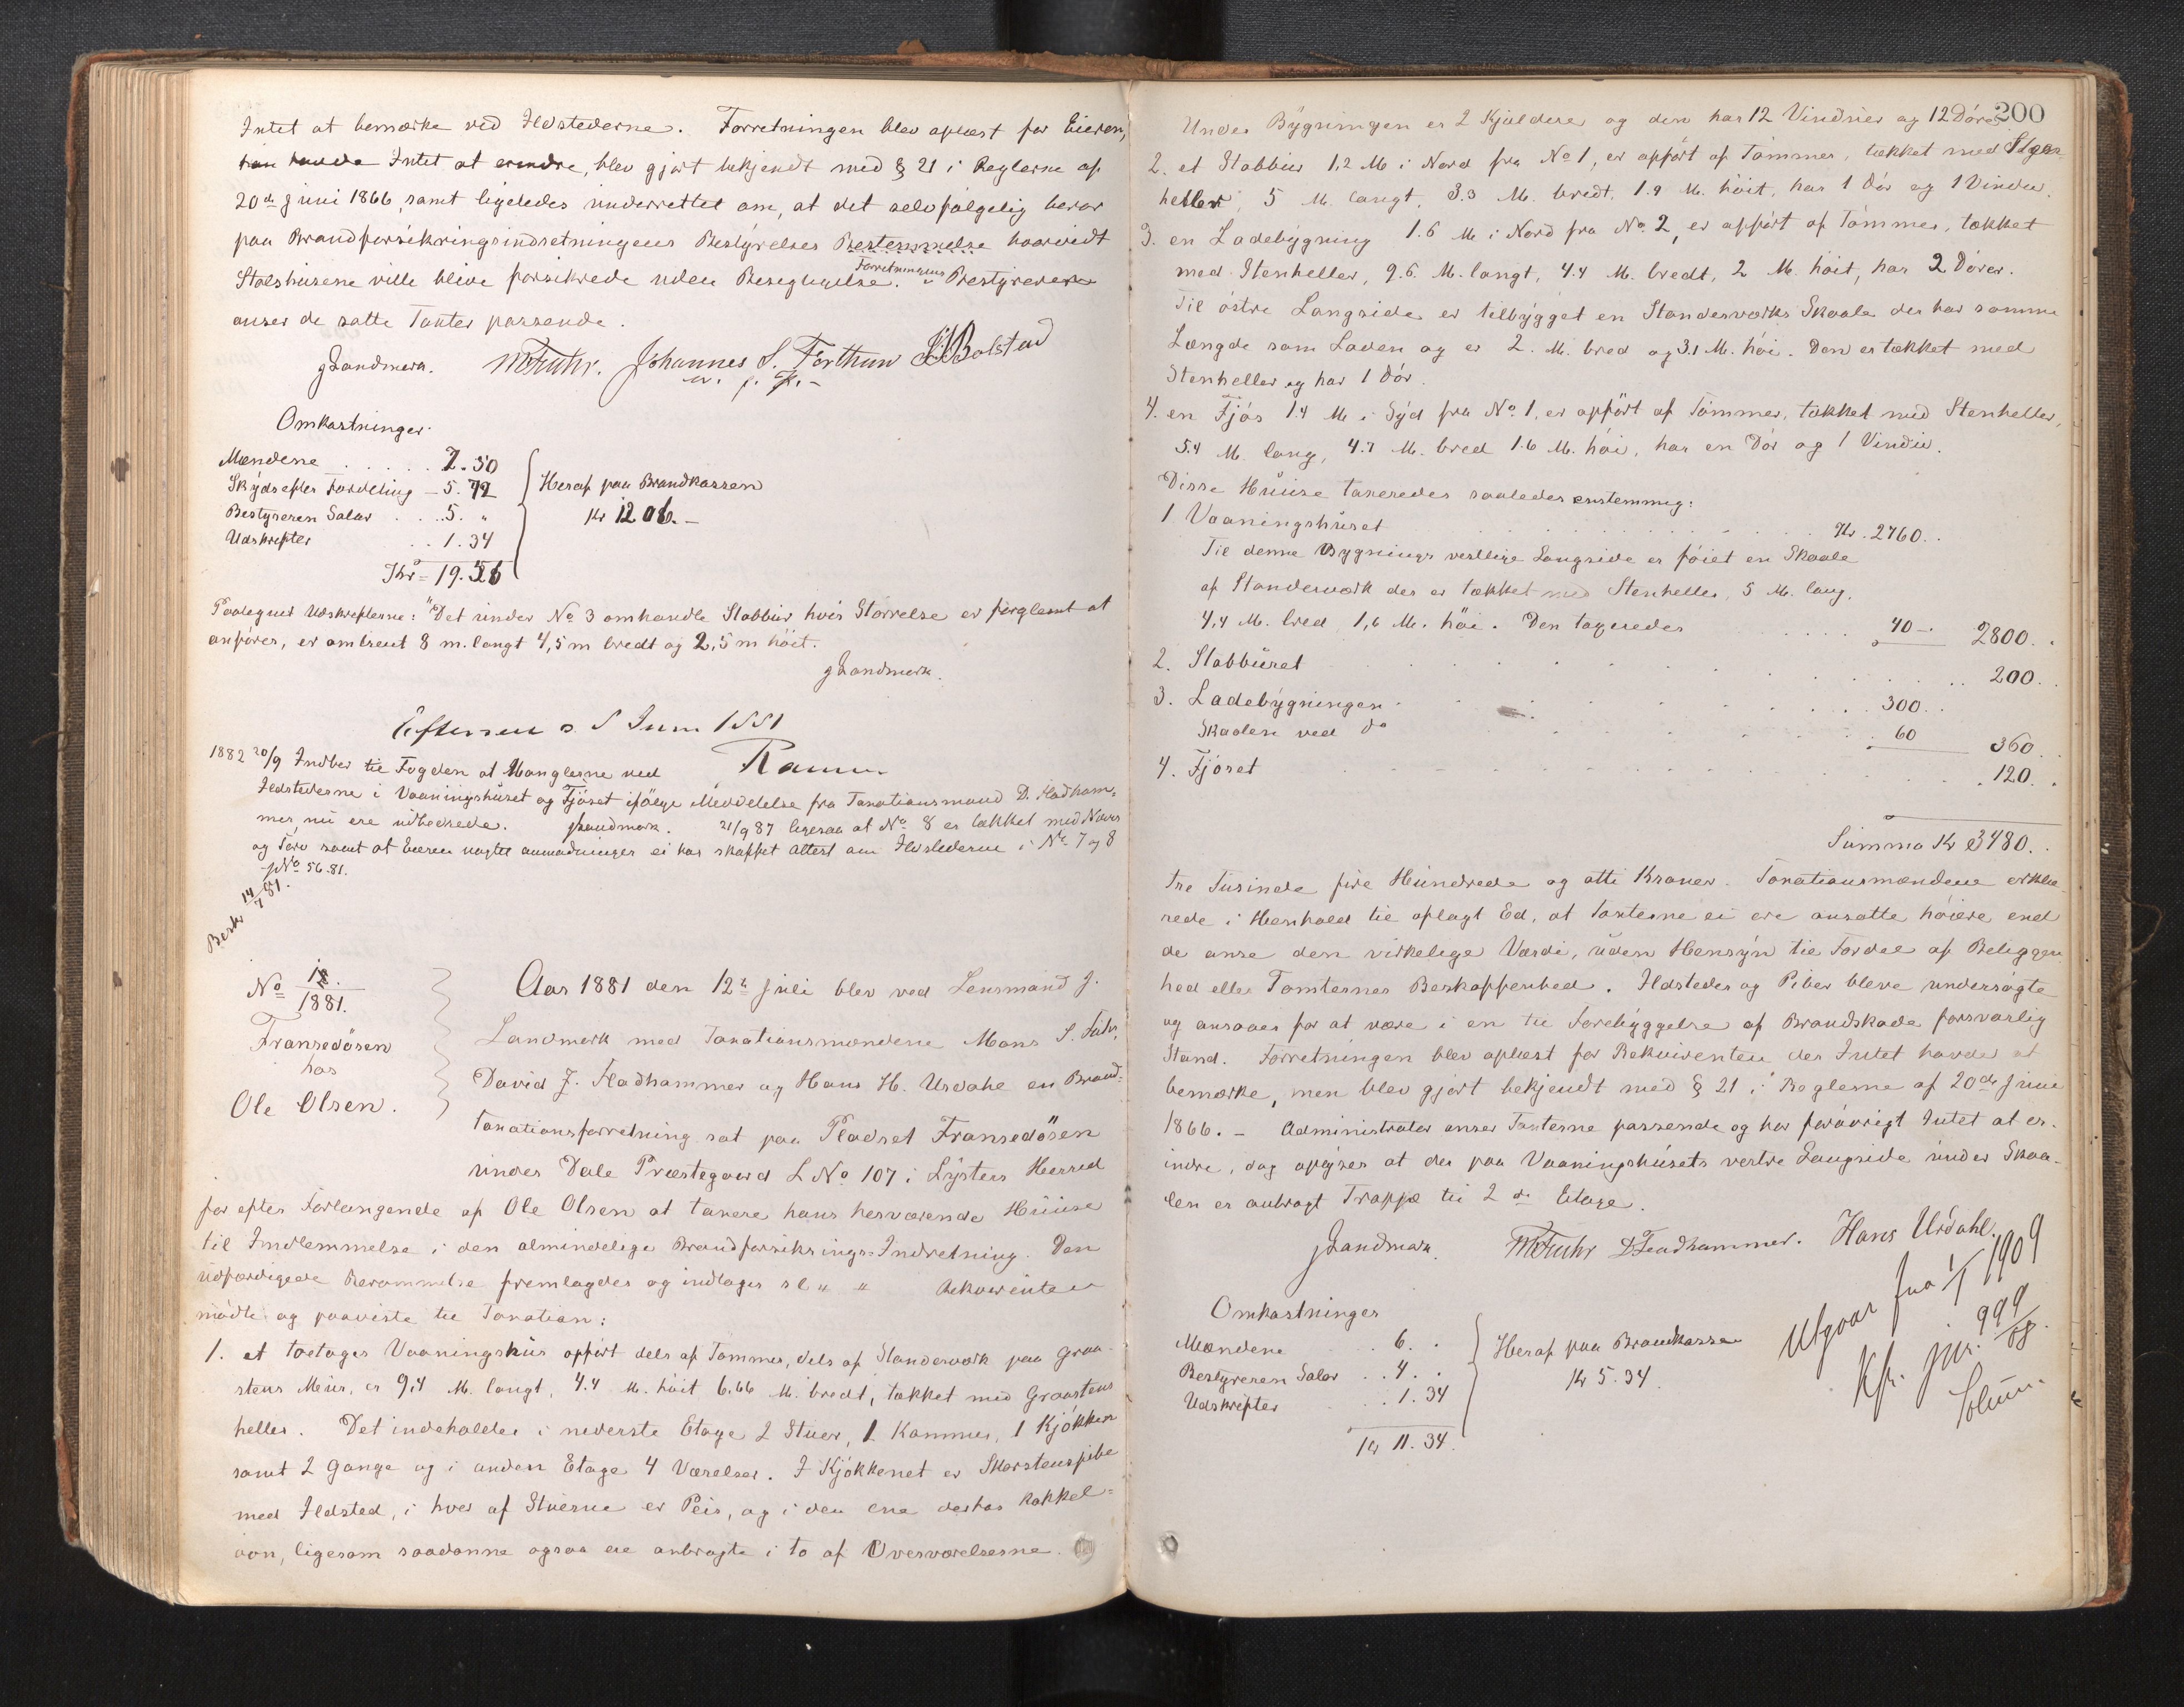 Intet at bemærke ved Ildstederne. Forretningen blev oplæst for Eieren,
han havde Intet at erindre, blev gjort bekjendt med § 21 i Reglerne af
20de Juni 1866, samt ligeledes underrettet om, at det selvfølgelig beror
paa Brandforsikringsindretningens Bestyrelses Bestemmelse hvorvidt
Stølshusene ville blive forsikrede uden Besigtigelse. Forretningens Bestyrer
anser de satte Taxter passende.
JLandmark. MFuhr. Johannes S. Forthun Bolstad
m. p. P.
Omkostninger
Mændene 7.50
Skyds efter Fordeling - 5.72
Bestyreren Salær 5. "
Udskrifter 1.34
Kr = 19.56
Heraf paa Brandkassen
Kr 12.06.-
Paategnet Udskrifterne: "Det under No 3 omhandle Stabbur hvis Størrelse er forglemt at
anføres, er omtrent 8 m. langt 4,5 m bredt og 2,5 m høit.
JLandmark.
Efterseet 5 Juni 1881
1882 20/9 Indber til Fogden at Manglerne ved
Ildstederne i Vaaningshuset og Fjøset ifølge Meddelelse fra Taxationsmand D. Fladham-
mer, nu ere udbedrede. JLandmark. 21/9 87 ligesaa at No 8 er tækket med Næver
og Torv samt at Eieren uagtet anmodninger ei har skaffet Attest om Ildstederne i No 7 og 8
JNo 56.81.
Besk 14/7 81.
No 12./1881.
Fransedøsen
hos
Ole Olsen.
Aar 1881 den 12te Juli blev ved Lensmand J.
Landmark med Taxationsmændene Mons S. Fuhr,
David J. Fladhammer og Hans H. Urdahl en Brand-
taxationsforretning sat paa Pladset Fransedøsen
under Dale Præstegaard L No 107 i Lysters Herred
for efter Forlangende af Ole Olsen at taxere hans herværende Huuse
til Indlemmelse i den almindelige Brandforsikrings-Indretning. Den
udfærdigede Berammelse fremlagdes og indtages sl " " Rekvirenten
mødte og paaviste til Taxation:
1. et toetages Vaaningshus opført dels af Tømmer, dels af Standerværk paa Graa-
stens Muur, er 9,4 M. langt, 4.4 M. høit 6.66 M. bredt, tækket med Graastens
heller. Det indeholder i nederste Etage 2 Stuer, 1 Kammer, 1 Kjøkken
samt 2 Gange og i anden Etage 4 Værelser. I Kjøkkenet er Skorstenspibe
med Ildsted, i hver af Stuerne er Peis, og i den ene desuden Kakkel-
ovn, ligesom saadanne ogsaa ere anbragte i to af Oversværelserne.
200
Under Bygningen er 2 Kjældere og den har 12 Vinduer og 12 Døre
2. et Stabbur 1,2 M i Nord fra No 1, er opført af Tømmer, tækket med Sten-
heller, 5 M. langt, 3.3 M. bredt, 1.9 M. høit, har 1 Dør og 1 Vindu.
3. en Ladebygning 1.6 M i Nord fra No 2, er opført af Tømmer, tækket
med Stenheller, 9.6. M. langt, 4.4 M. bredt, 2 M. høit, har 2 Dører.
Til østre Langside er tilbygget en Standerværks Skaale der har samme
Længde som Laden og er 2. M. bred og 3.1 M. høi. Den er tækket med
Stenheller og har 1 Dør.
4. en Fjøs 1.4 M i Syd fra No 1, er opført af Tømmer, tækket med Stenheller,
5.4 M. lang, 4.7 M. bred 1.6 M. høi, har en Dør og 1 Vindu.
Disse Huuse taxeredes saaledes enstemmig:
1 Vaaningshuset Kr. 2760.
Til denne Bygnings vestlige Langside er føiet en Skaale
af Standerværk der er tækket med Stenheller, 5 M. lang,
4,4 M. bred 1,6 M. høi. Den taxeredes 40 - 2800.
2. Stabburet 200.
3. Ladebygningen 300.
Skaalen ved do 60 360.
4. Fjøset 120.
Summa Kr 3480.
tre Tusinde fire Hundrede og otti Kroner. Taxationsmændene erklæ-
rede i Henhold til aflagt Ed, at Taxterne ei ere ansatte høiere end
de anse den virkelige Værdi, uden Hensyn til Fordel af Beliggen-
hed eller Tomternes Beskaffenhed. Ildsteder og Piber bleve undersøgte
og ansaaes for at være i en til Forebyggelse af Brandskade forsvarlig
Stand. Forretningen blev oplæst for Rekvirenten der Intet havde at
bemærke, men blev gjort bekjendt med § 21 i Reglerne af 20de Juni
1866. - Administrator anser Taxterne passende og har forøvrigt Intet at er-
indre, dog oplyses at der paa Vaaningshusets vestre Langside under Skaa-
len er anbragt Trappe til 2 de Etage.
JLandmark. MFuhr DFladhammer. Hans Urdahl.
Omkostninger
Mændene 6.
Bestyreren Salær 4.
Udskrifter 1.34
Kr 11.34.
Heraf paa Brandkasse
Kr 5.34.
Utgaar fra 1/1 1909
Kfr. jnr. 999/08.
Solum.